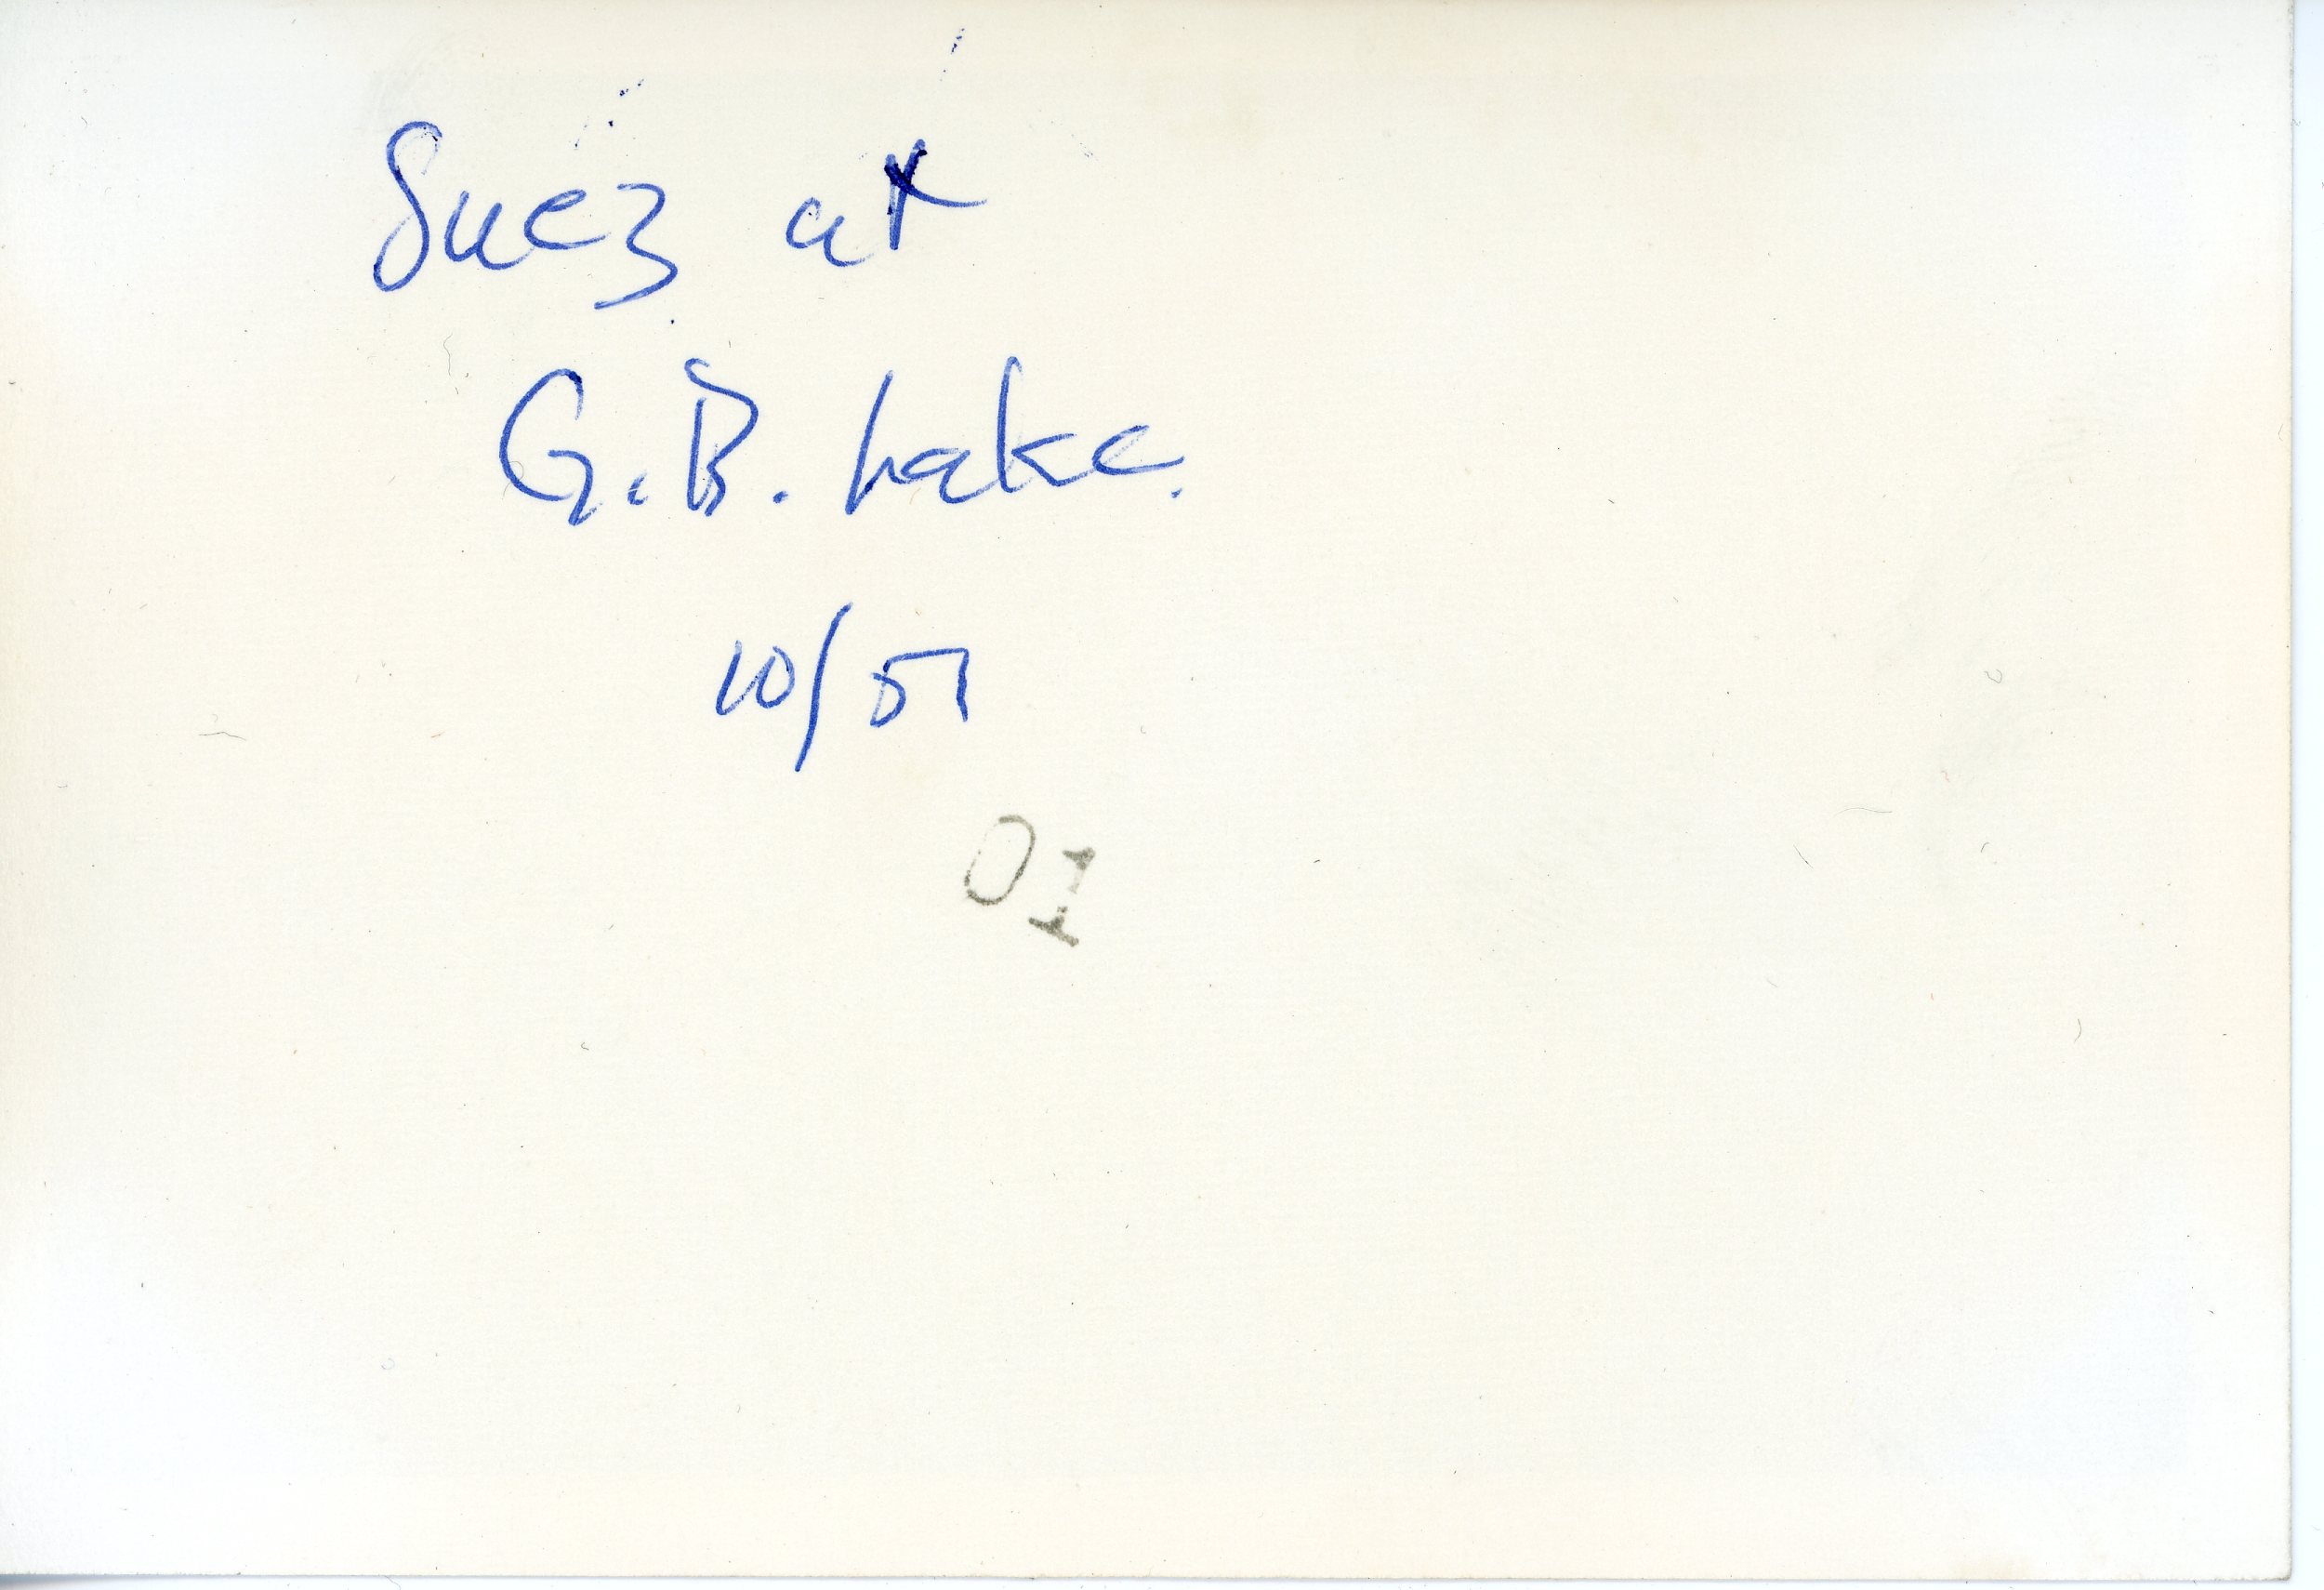 Suez at
G.B. Lake.
10/51
01